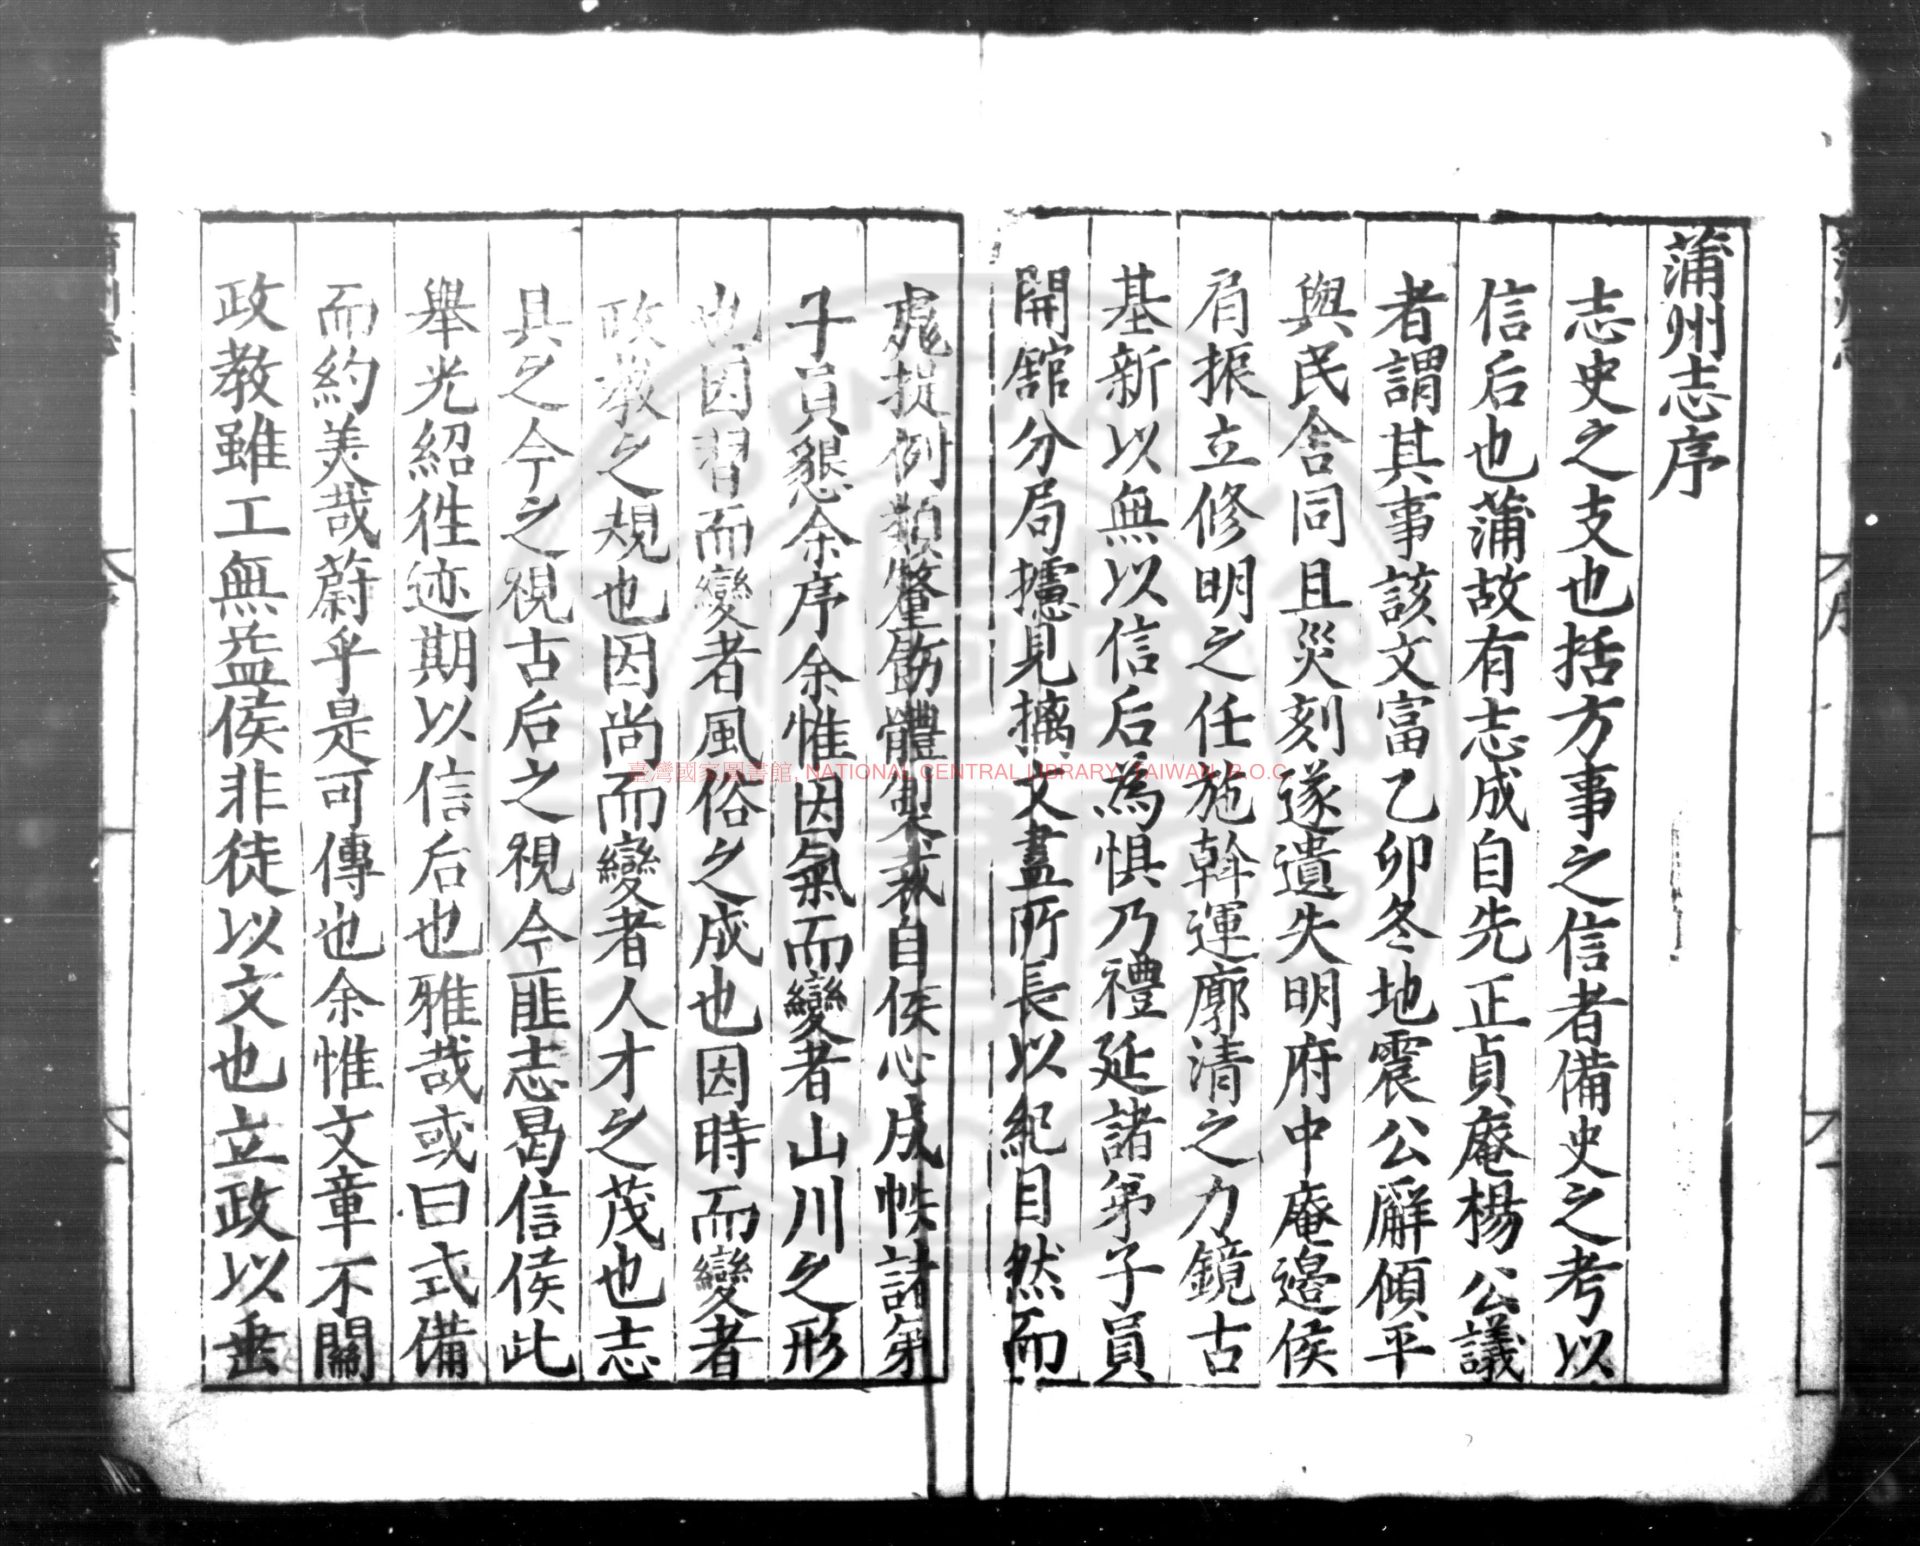 蒲州志序
志史之支也括方事之信者備史之考以
信后也蒲故有志成自先正貞庵楊公議
者謂其事該文富乙卯冬地震公廨傾平
與民舍同且災刻遂遺失明府中庵邉侯
有振立修明之任施幹運廓清之力鏡古
基新以無以信后為惧乃禮延諸弟子員
開館分局攄見摛文盡所長以紀目然而
發提例類釐飭體製裁自侯心成帙諸弟
子員懇余序余惟因氣而變者山川之形
也因習而變者風俗之成也因時而變者
政教之規也因尚而變者人才之茂也志
具之今之視古后之視今匪志曷信侯此
舉光紹徃迹期以信后也雅哉或曰式備
而約美哉蔚乎是可傳也余惟文章不關
政教雖工無益侯非徒以文也立政以垂
臺灣國家圖書館, NATIONAL CENTRAL LIBRARY, TAIWAN, R.O.C.